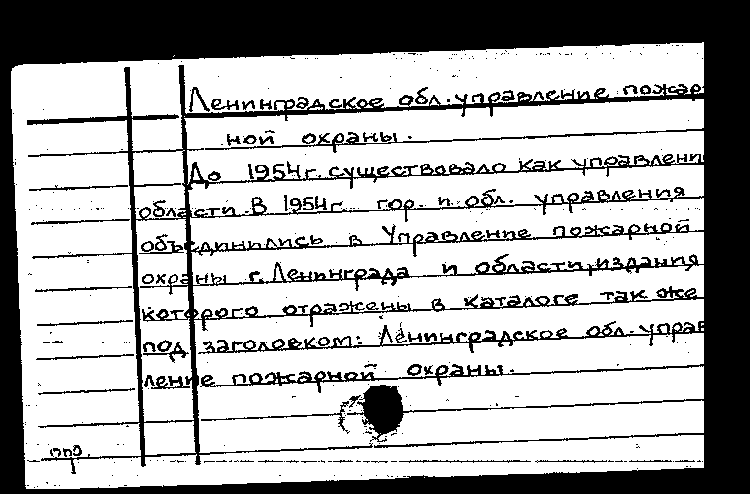 Ленинградское обл. управление пожар-
ной охраны.
До 1954г. существовало как управлени
области. В 1954г. гор. и обл. управления
объединились в Управление пожарной
охраны г. Ленинграда и области, издания
которого отражены в каталоге так же
под заголовком: Ленинградское обл. управ
ление пожарной охраны.